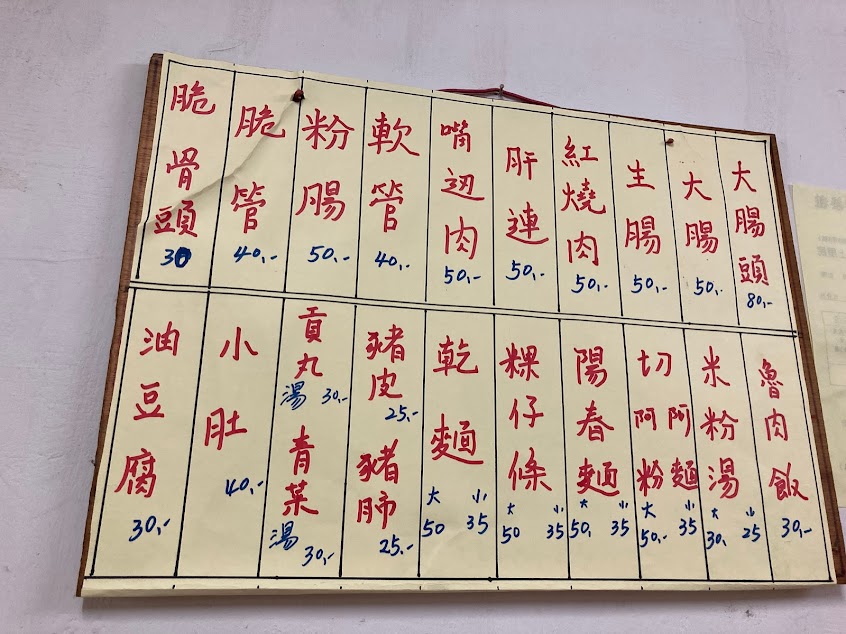 大腸頭 80,-
大腸 50,-
生腸 50,-
紅燒肉 50,-
肝連 50,-
嘴边肉 50,-
軟管 40,-
粉腸 50,-
脆管 40,-
脆骨頭 30
魯肉飯 30,-
米粉湯 大30, 小25
切阿麵 切阿粉 大50,- 小35
陽春麵 大50, 小35
粿仔條 大50 小35
乾麵 大50 小35
豬皮 25,-
豬肺 25,-
貢丸湯 30,-
青菜湯 30,-
小肚 40,-
油豆腐 30,-